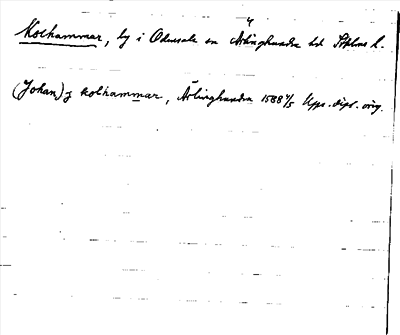 Kolhammar, by i Odensala sn Ärlinghundra hd Sthlms l.
(Johan) j kolhammar, Ärlinghundra 1588 4/5 Upps. dipl. orig.